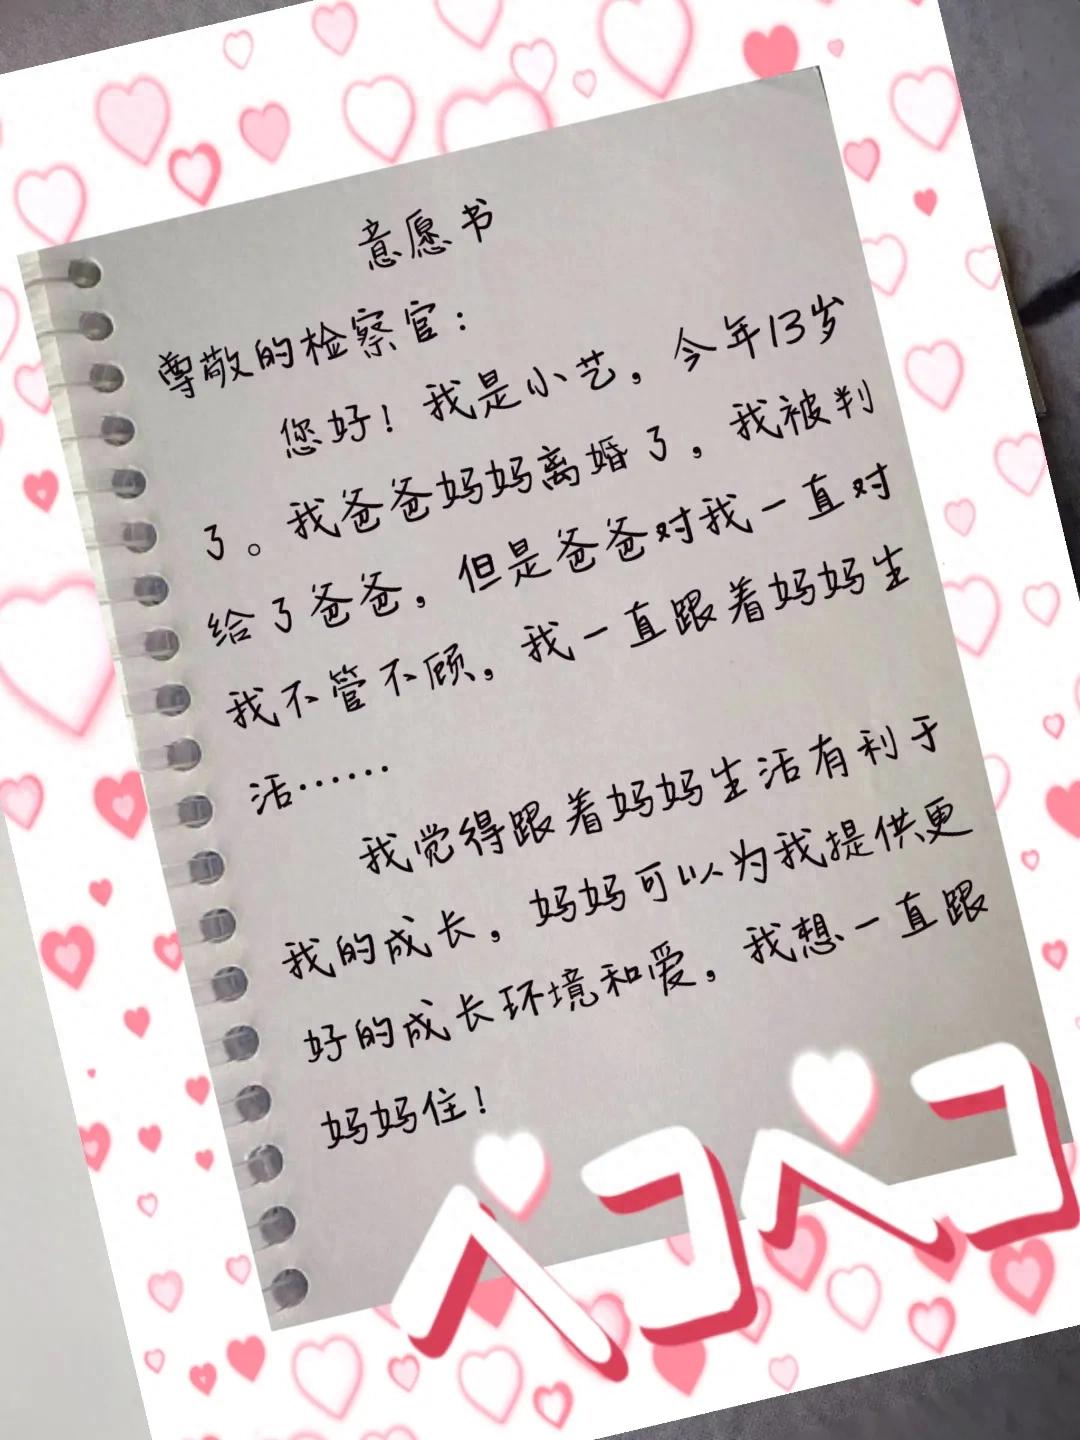 意愿书
尊敬的检察官：
您好！我是小艺，今年13岁
了。我爸爸妈妈离婚了，我被判
给了爸爸，但是爸爸对我一直对
我不管不顾，我一直跟着妈妈生
活……
我觉得跟着妈妈生活有利于
我的成长，妈妈可以为我提供更
好的成长环境和爱，我想一直跟
妈妈住！
ペコペコ